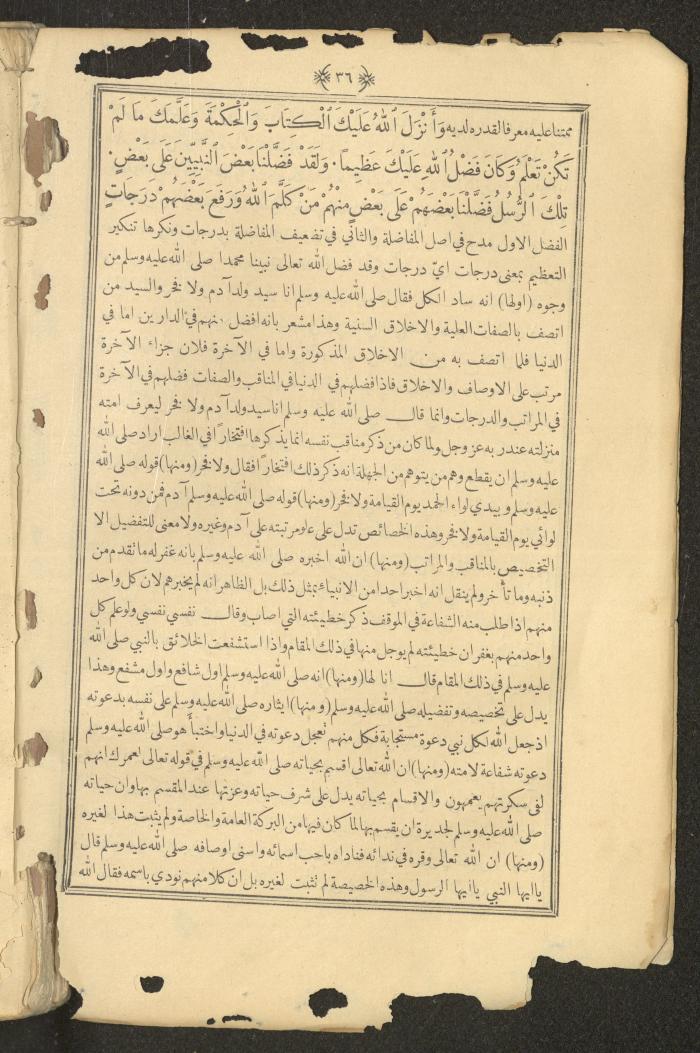 ٣٦
ممتنا عليه معرفا لقدره لديه وَأَنْزَلَ ٱللهُ عَلَيْكَ ٱلْكِتَابَ وَٱلْحِكْمَةَ وَعَلَّمَكَ مَا لَمْ
تَكُنْ تَعْلَمُ وَكَانَ فَضْلُ ٱللهِ عَلَيْكَ عَظِيماً. وَلَقَدْ فَضَّلْنَا بَعْضَ ٱلنَّبِيِّينَ عَلَى بَعْضٍ.
تِلْكَ ٱلرُّسُلُ فَضَّلْنَا بَعْضَهُمْ عَلَى بَعْضٍ مِنْهُمْ مَنْ كَلَّمَ ٱللهُ وَرَفَعَ بَعْضَهُمْ دَرَجَاتٍ
الفضل الاول مدح في اصل المفاضلة والثاني في تضعيف المفاضلة بدرجات ونكرها تنكير
التعظيم بمعنى درجات ايّ درجات وقد فضل الله تعالى نبينا محمدا صلى الله عليه وسلم من
وجوه (اولها) انه ساد الكل فقال صلى الله عليه وسلم انا سيد ولد آدم ولا فخر والسيد من
اتصف بالصفات العلية والاخلاق السنية وهذا مشعر بانه افضل منهم في الدارين اما في
الدنيا فلما اتصف به من الاخلاق المذكورة واما في الآخرة فلان جزاء الآخرة
مرتب على الاوصاف والاخلاق فاذا فضلهم في الدنيا في المناقب والصفات فضلهم في الآخرة
في المراتب والدرجات وانما قال صلى الله عليه وسلم انا سيد ولد آدم ولا فخر ليعرف امته
منزلته عند ربه عز وجل ولما كان من ذكر مناقب نفسه انما يذكرها افتخارًا في الغالب اراد صلى الله
عليه وسلم ان يقطع وهم من يتوهم من الجهلة انه ذكر ذلك افتخارًا فقال ولا فخر (ومنها) قوله صلى الله
عليه وسلم وبيدي لواء الحمد يوم القيامة ولا فخر (ومنها) قوله صلى الله عليه وسلم آدم فمن دونه تحت
لوائي يوم القيامة ولا فخر وهذه الخصائص تدل على علو مرتبته على آدم وغيره ولا معنى للتفضيل الا
التخصيص بالمناقب والمراتب (ومنها) ان الله اخبره صلى الله عليه وسلم بانه غفر له ما تقدم من
ذنبه وما تأخر ولم ينقل انه اخبر احدا من الانبياء بمثل ذلك بل الظاهر انه لم يخبرهم لان كل واحد
منهم اذا طلب منه الشفاعة في الموقف ذكر خطيئته التي اصاب وقال نفسي نفسي ولو علم كل
واحد منهم بغفران خطيئته لم يوجل منها في ذلك المقام واذا استشفعت الخلائق بالنبي صلى الله
عليه وسلم في ذلك المقام قال انا لها (ومنها) انه صلى الله عليه وسلم اول شافع واول مشفع وهذا
يدل على تخصيصه وتفضيله صلى الله عليه وسلم (ومنها) ايثاره صلى الله عليه وسلم على نفسه بدعوته
اذ جعل الله لكل نبي دعوة مستجابة فكل منهم تعجل دعوته في الدنيا واختبأ هو صلى الله عليه وسلم
دعوته شفاعة لامته (ومنها) ان الله تعالى اقسم بحياته صلى الله عليه وسلم في قوله تعالى لعمرك انهم
لفي سكرتهم يعمهون والاقسام بحياته يدل على شرف حياته وعزتها عند المقسم بها وان حياته
صلى الله عليه وسلم لجديرة ان يقسم بها لما كان فيها من البركة العامة والخاصة ولم يثبت هذا لغيره
(ومنها) ان الله تعالى وقره في ندائه فناداه باحب اسمائه واسنى اوصافه صلى الله عليه وسلم قال
يا ايها النبي يا ايها الرسول وهذه الخصيصة لم تثبت لغيره بل ان كلا منهم نودي باسمه فقال الله